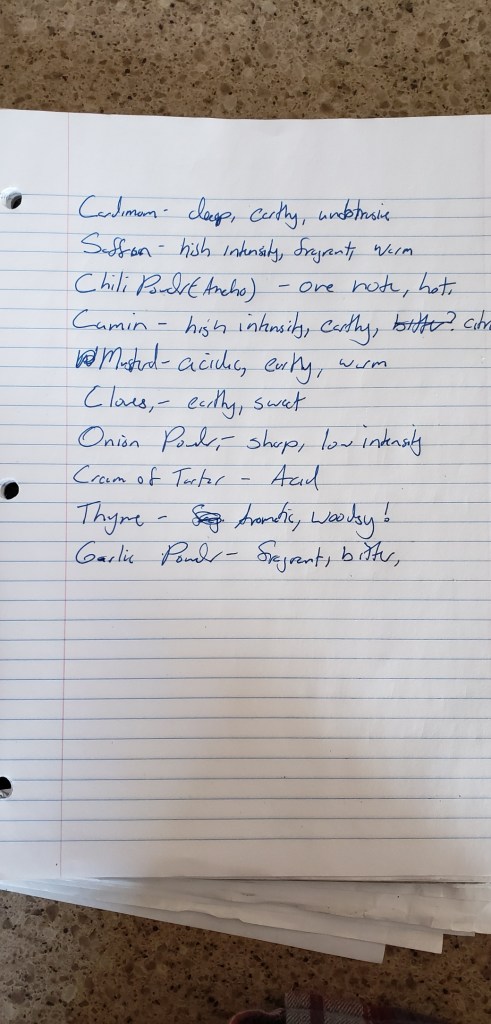 Cardimom - deep, earthy, unobtrusive
Saffron - high intensity, fragrant, warm
Chili Powder (Ancho) - one note, hot,
Cumin - high intensity, earthy, bitter? citr
Mustard - acidic, earthy, warm
Cloves, - earthy, sweet
Onion Powder, - sharp, low intensity
Cream of Tartar - Acid
Thyme - Aromatic, woodsy!
Garlic Powder - fragrant, bitter,